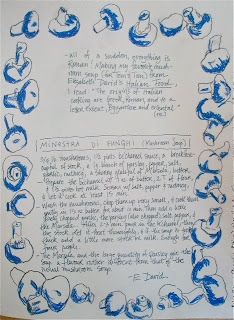 - All of a sudden, everything is
Roman! Making my favorite mush-
room soup from
Elizabeth David's Italian Food,
I read "The origins of Italian
cooking are Greek, Roman, and to a
lesser extent, Byzantine and oriental."
MINESTRA DI FUNGHI (Mushroom Soup)
mushrooms, 1½ pints béchamel sauce, a breakfast-
of stock, a ½ bunch of parsley, pepper, salt,
garlic, nutmeg, a tablespoonful of Marsala, butter.
Prepare the béchamel with 2 oz of butter, 2 T of flour,
& 1½ pints hot milk. Season w/ salt, pepper & nutmeg;
& let it cook at least 15 min.
Wash the mushrooms, chop them up very small, & cook them
gently in 1½ oz butter for about 10 min. Then add a little
finely chopped garlic, the parsley (also chopped), salt, pepper, &
the Marsala. After 2-3 min. pour in the béchamel
the stock. Heat it thoroughly & if the soup is too
thick add a little more stock or milk. Enough for
four people.
- The Marsala and the large quantity of parsley give the
soup a flavour rather different from that of the
usual mushroom soup.
- E. David